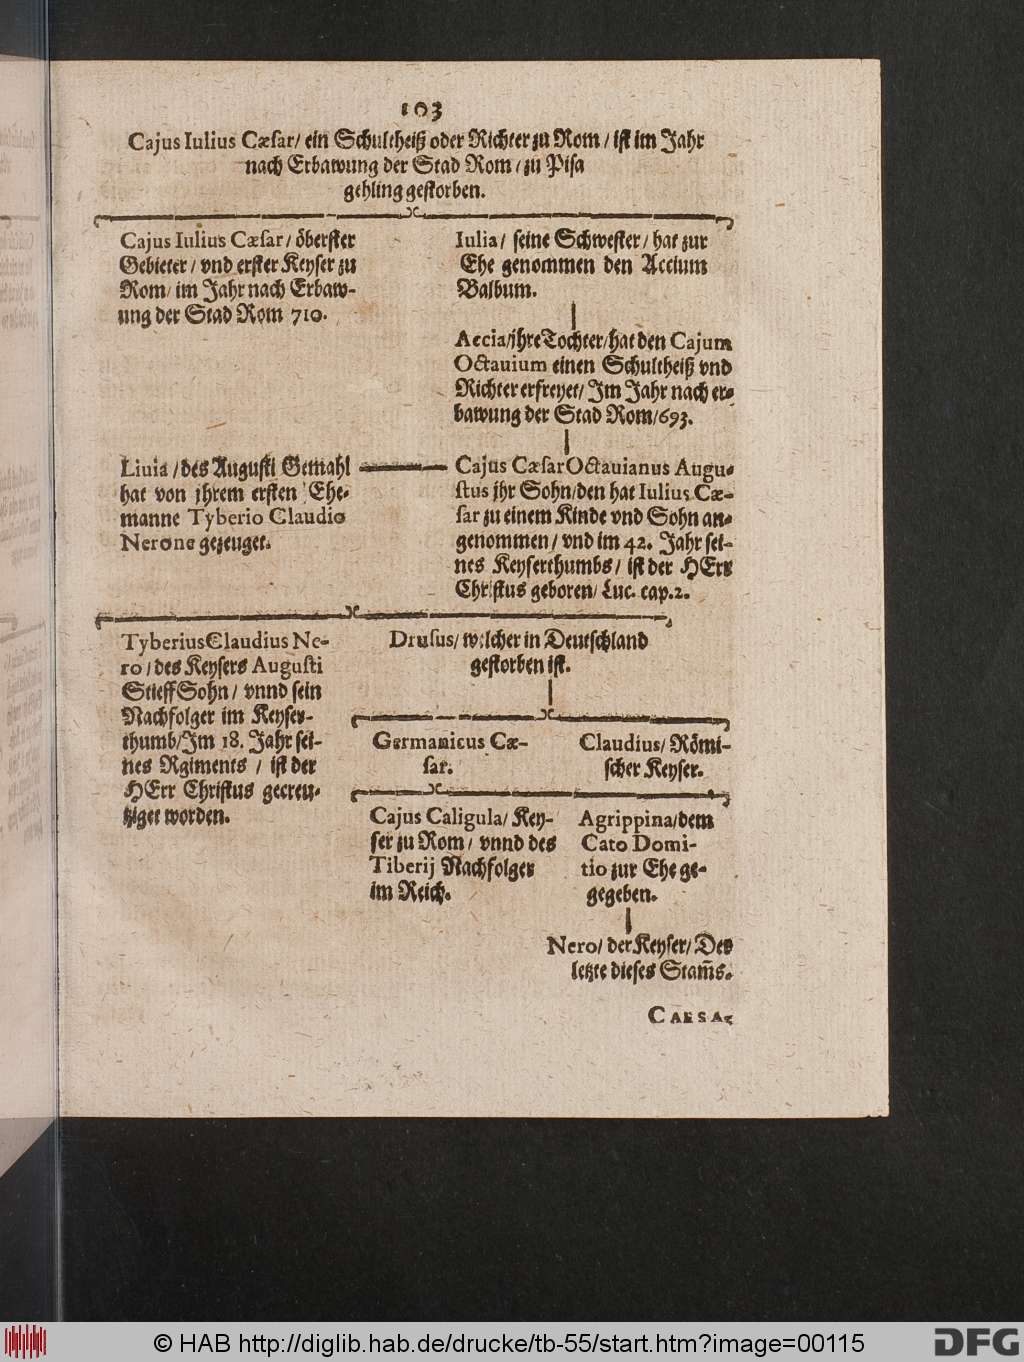 103
Cajus Iulius Cæsar/ ein Schultheiß oder Richter zu Rom / ist im Jahr
nach Erbawung der Stad Rom / zu Pisa
gehling gestorben.
Cajus Iulius Cæsar / öberster
Gebieter / vnd erster Keyser zu
Rom/ im Jahr nach Erbaw-
ung der Stad Rom 710.
Iulia / seine Schwester / hat zur
Ehe genommen den Accium
Balbum.
Accia/jhre Tochter/hat den Cajum
Octauium einen Schultheiß vnd
Richter erfreyet/ Jm Jahr nach er-
bawung der Stad Rom/693.
Liuia / des Augusti Gemahl
hat von jhrem ersten Ehe-
manne Tyberio Claudio
Nerone gezeuget.
Cajus Cæsar Octauianus Augu-
stus jhr Sohn/den hat Iulius Cæ-
sar zu einem Kinde vnd Sohn an-
genommen / vnd im 42. Jahr sei-
nes Keyserthumbs / ist der HErr
Christus geboren/ Luc. cap.2.
Tyberius Claudius Ne-
ro / des Keysers Augusti
Stieff Sohn / vnnd sein
Nachfolger im Keyser-
thumb/Jm 18. Jahr sei-
nes Rgiments / ist der
HErr Christus gecreu-
tziget worden.
Drusus/ welcher in Deutschland
gestorben ist.
Germanicus Cæ-
sar.
Claudius/ Römi-
scher Keyser.
Cajus Caligula/ Key-
ser zu Rom / vnnd des
Tiberij Nachfolger
im Reich.
Agrippina/dem
Cato Domi-
tio zur Ehe ge-
gegeben.
Nero/ der Keyser/ Der
letzte dieses Stam̄s.
CAESA-
© HAB http://diglib.hab.de/drucke/tb-55/start.htm?image=00115
DFG